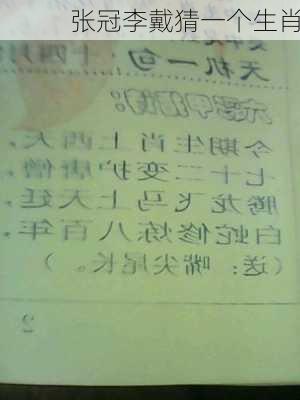 张冠李戴猜一个生肖
天机一句
今期生肖上西天，
七十二变护唐僧，
腾龙飞马上天廷，
白蛇修炼八百年，
（送：嘴尖尾长。）
2